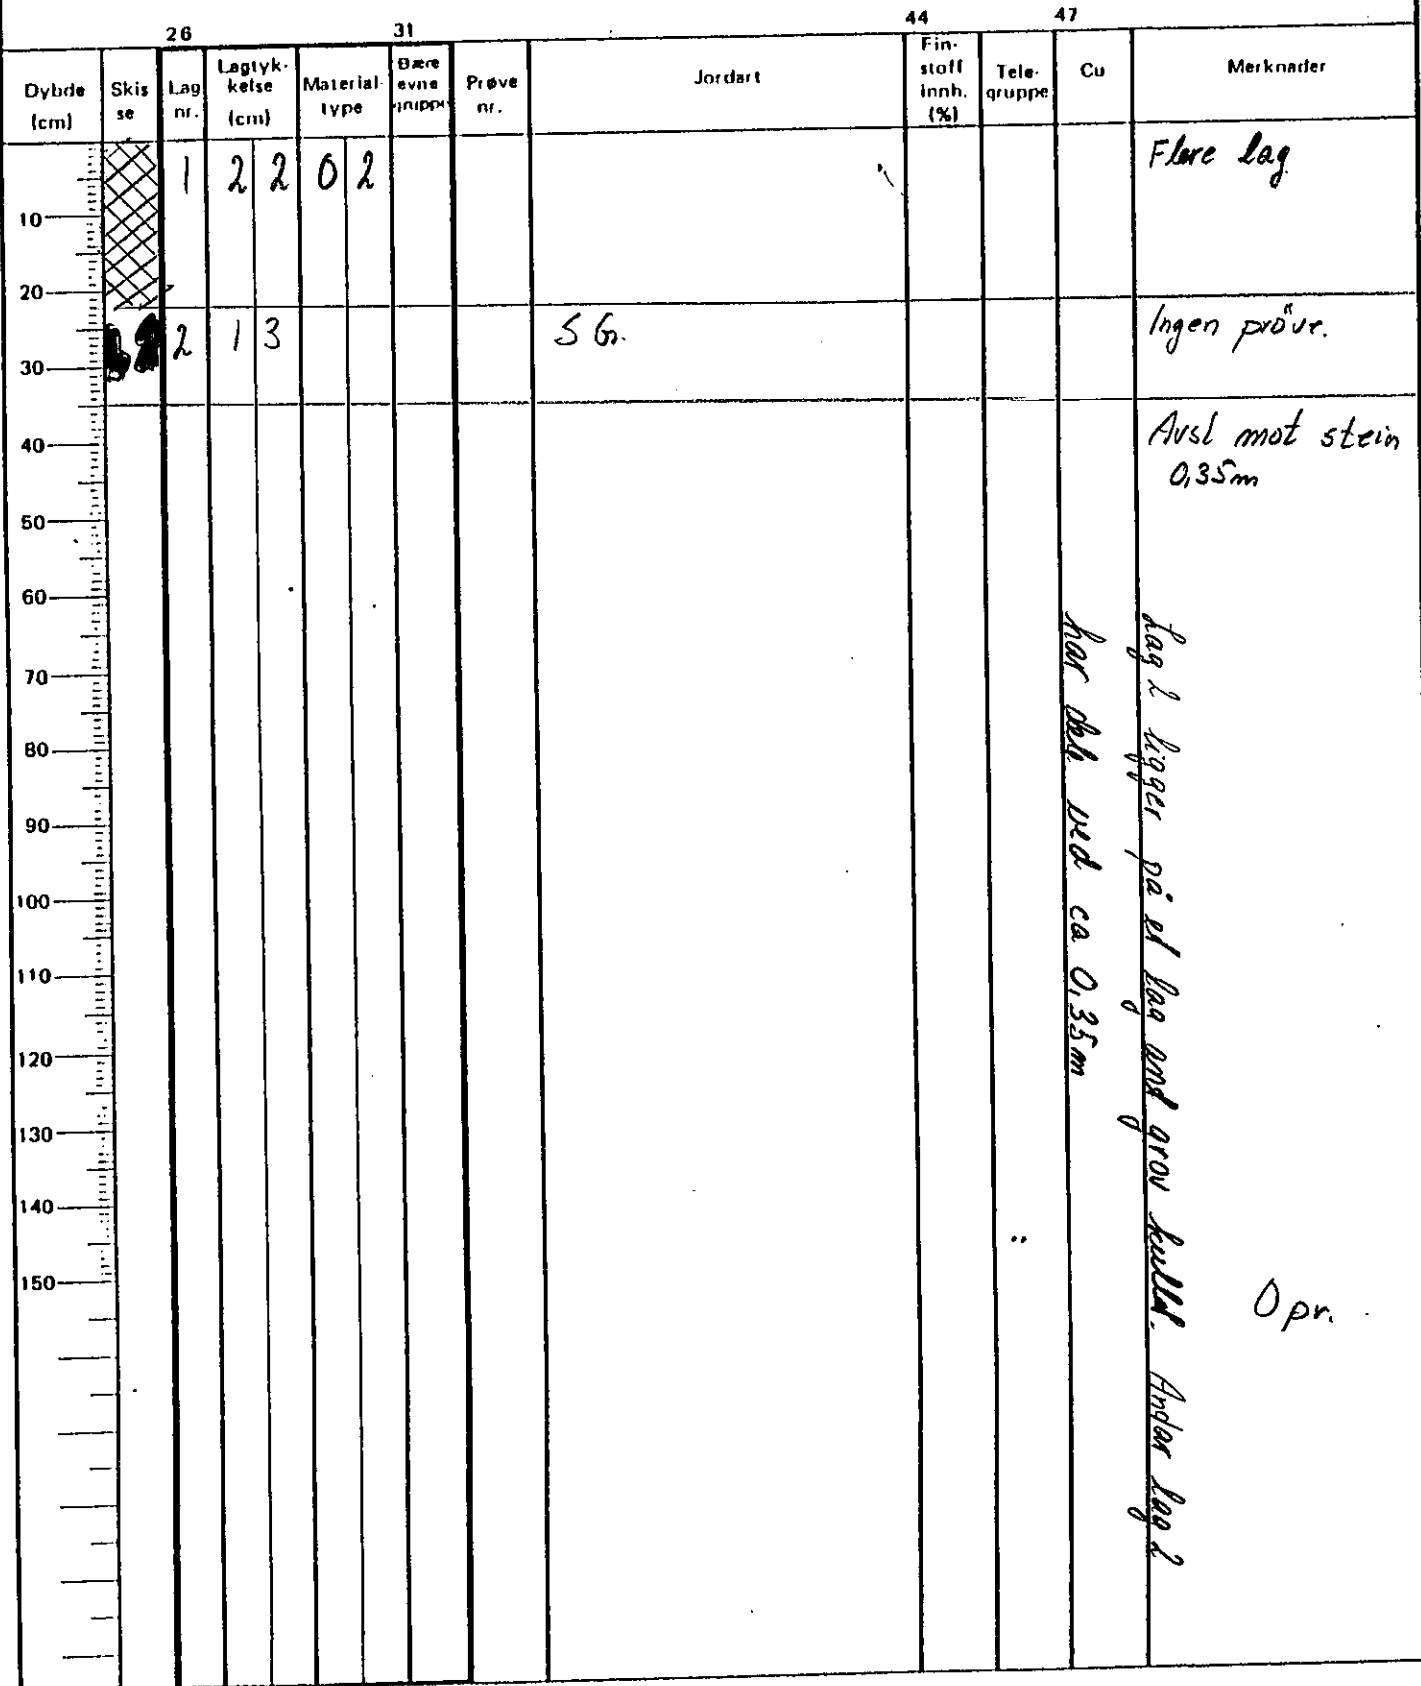 26 31 44 47
Dybde (cm)
Skis se
Lag nr.
Lagtyk- kelse (cm)
Material- type
Bære evne gruppe
Prøve nr.
Jordart
Fin- stoff innh. (%)
Tele- gruppe
Cu
Merknader
1 2 2 0 2 Flere lag
10
20
2 1 3 S Gr. Ingen pröve.
30
Avsl mot stein
0,35m
40
50
60
70
80
90
100
110
120
130
140
150
Lag 2 ligger på et lag grov Lag 2
har ved ca 0,35m
0 pr.